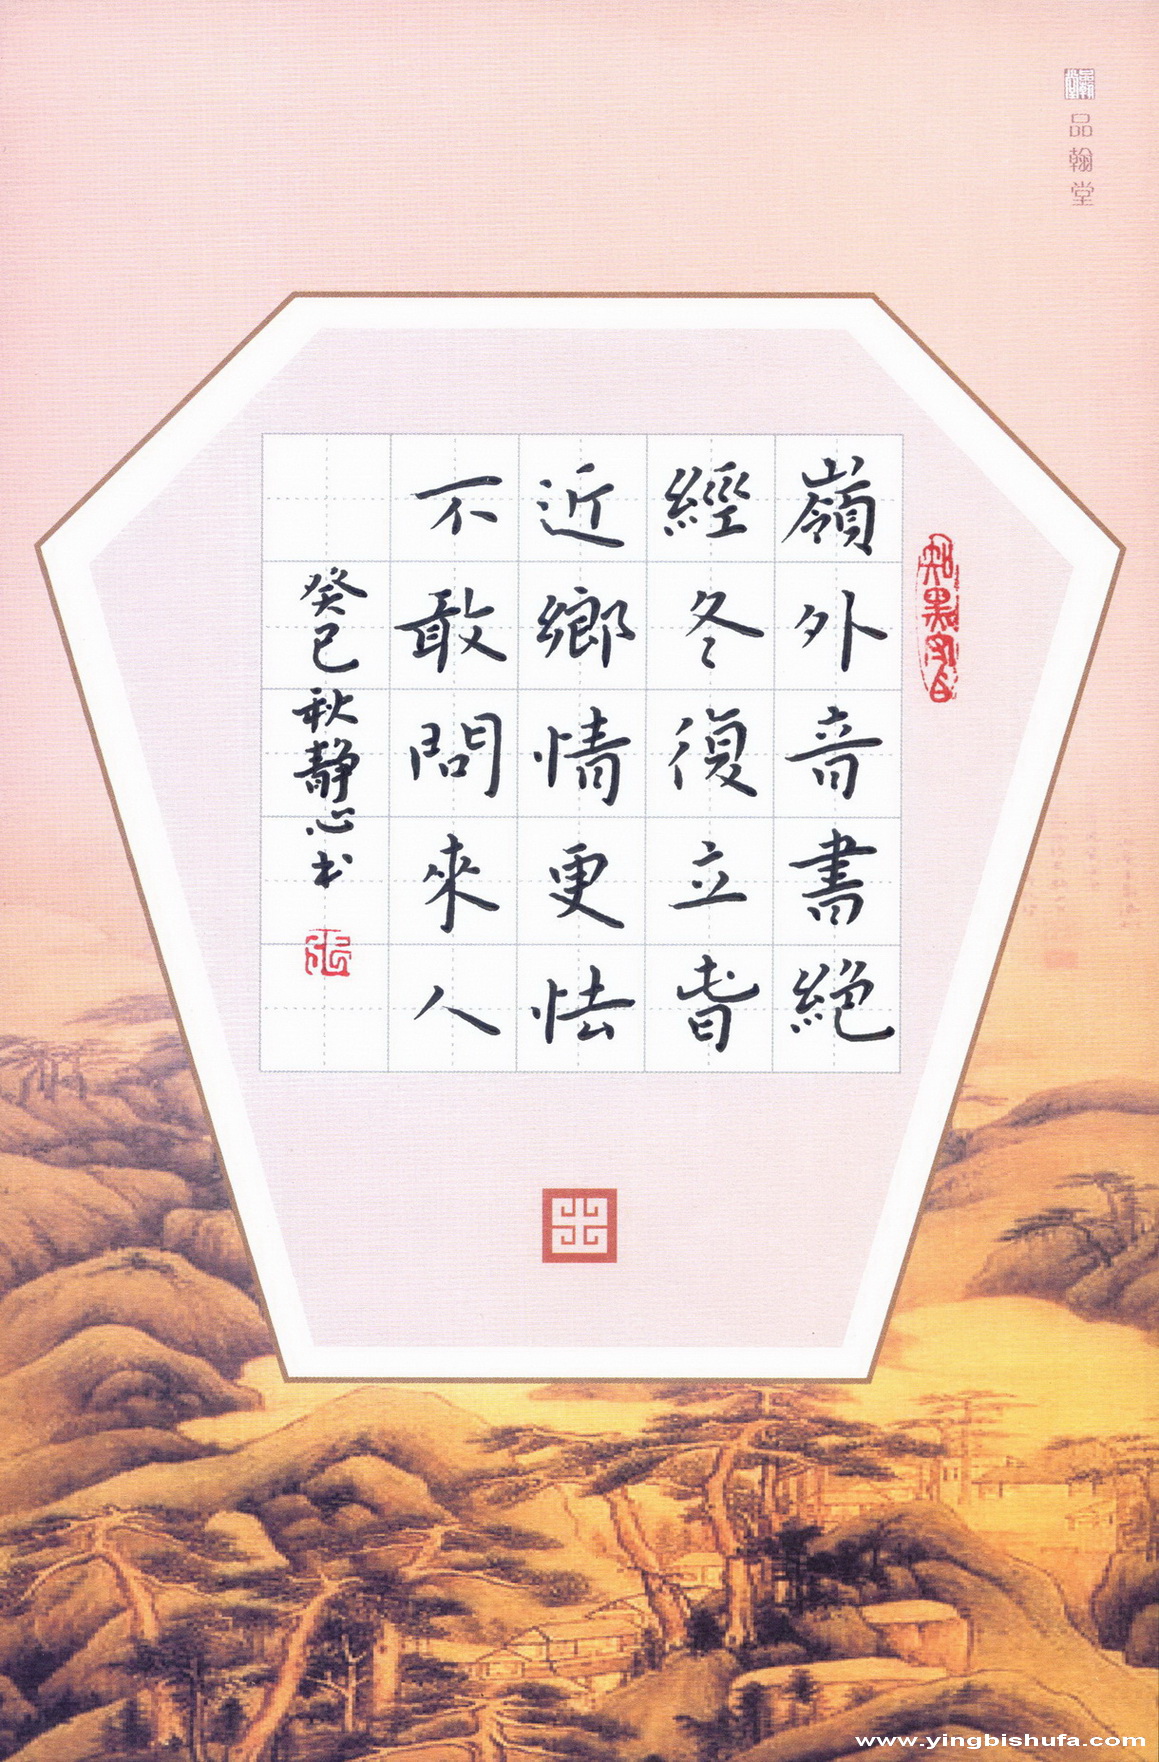 品翰堂
知黑守白
嶺外音書絕
經冬復立旾
近鄉情更怯
不敢問來人
癸巳秋静心书
www.yingbishufa.com